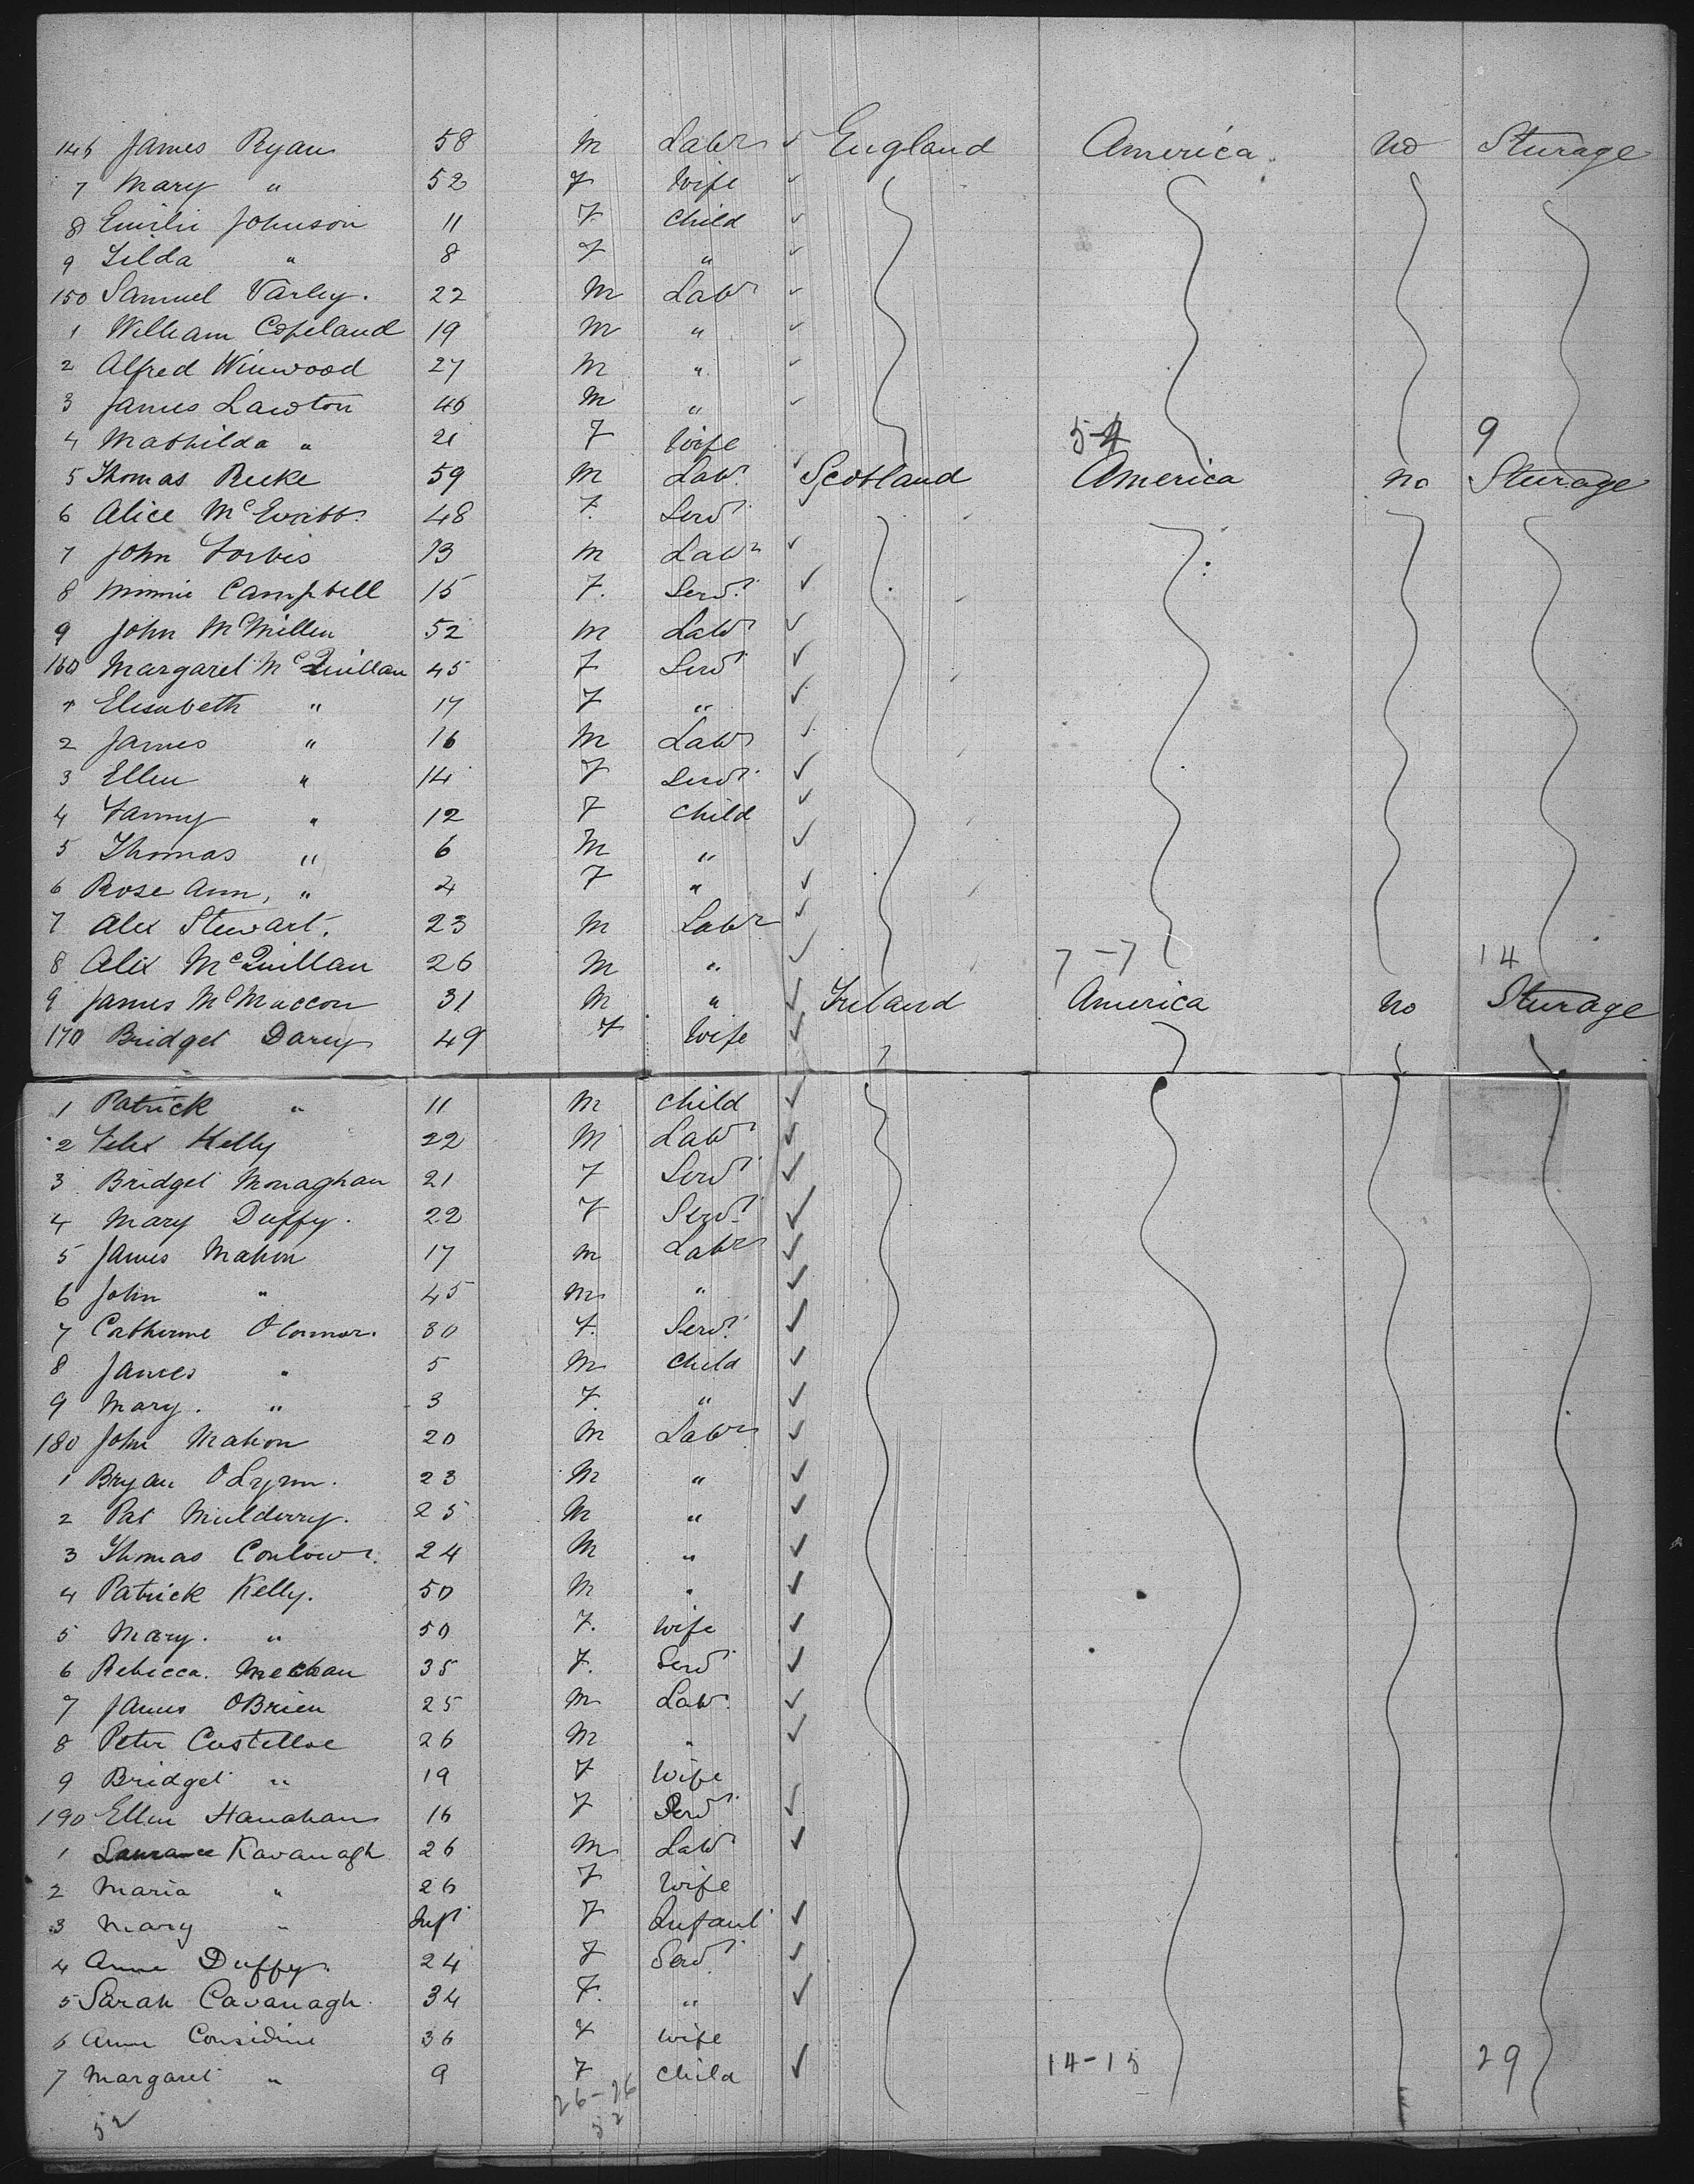 146 James Ryan 58 M Labr ✓ England America. No Sturage
7 Mary " 52 F Wife ✓
8 Emilie Johnson 11 F Child ✓
9 Tilda " 8 F " ✓
150 Samuel Varley. 22 M Labr ✓
1 William Copeland 19 M " ✓
2 Alfred Winwood 27 M " ✓
3 James Lawton 46 M " ✓
4 Mathilda " 21 F Wife 5-4 9
5 Thomas 59 M Labr ✓ Scotland America No Sturage
6 Alice 48 F. Servt
7 John Forbis 13 M Labr ✓
8 Minnie Campbell 15 F. Servt ✓
9 John McMillen 52 M Labr ✓
160 Margaret McQuillan 45 F Servt ✓
1 Elisabeth " 17 F " ✓
2 James " 16 M Labr ✓
3 Ellen " 14 F Servt ✓
4 Fanny " 12 F Child ✓
5 Thomas " 6 M " ✓
6 Rose Ann, " 4 F " ✓
7 Alex Stewart. 23 M Labr ✓
8 Alex McQuillan 26 M " ✓ 7-7 14
9 James 31 M " ✓ Ireland America No Sturage
170 Bridget Darcy 49 F Wife ✓
1 Patrick " 11 M Child ✓
2 Felix Kelly 22 M Labr ✓
3 Bridget Monaghan 21 F Servt ✓
4 Mary Duffy. 22 F Servt ✓
5 James Mahon 17 M Labr ✓
6 John " 45 M " ✓
7 Catherine OConnor. 30 F. Servt ✓
8 James " 5 M Child ✓
9 Mary. " 3 F. " ✓
180 John Mahon 20 M Labr ✓
1 Bryan 23 M " ✓
2 Pat Mulderry. 25 M " ✓
3 Thomas 24 M " ✓
4 Patrick Kelly. 50 M " ✓
5 Mary. " 50 F. Wife ✓
6 Rebecca. Meehan 35 F. Servt ✓
7 James OBrien 25 M Labr ✓
8 Peter Costelloe 26 M " ✓
9 Bridget " 19 F Wife
190 Ellen Hanahan 16 F Servt ✓
1 Laurance Kavanagh 26 M Labr ✓
2 Maria " 26 F Wife
3 Mary " Inft F Infant ✓
4 Anne Duffy. 24 F Servt ✓
5 Sarah Cavanagh. 34 F. " ✓
6 Anne Considine 36 F Wife
7 Margaret " 9 F Child ✓ 14-15 29
52 26-26
52